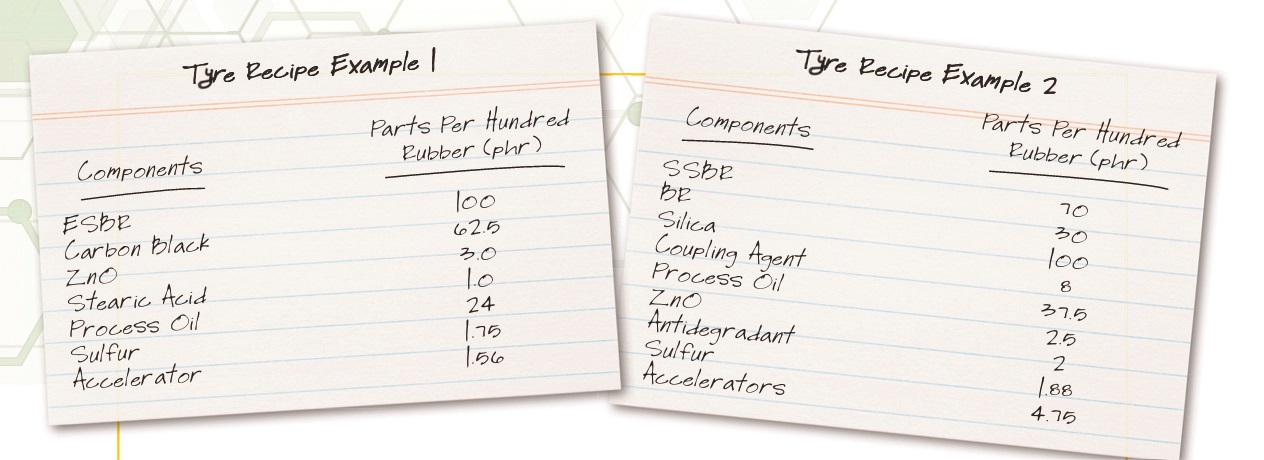 Tyre Recipe Example 1
Components
Parts Per Hundred
Rubber (phr)
ESBR 100
Carbon Black 62.5
ZnO 3.0
Stearic Acid 1.0
Process Oil 24
Sulfur 1.75
Accelerator 1.56
Tyre Recipe Example 2
Components
Parts Per Hundred
Rubber (phr)
SSBR 70
BR 30
Silica 100
Coupling Agent 8
Process Oil 37.5
ZnO 2.5
Antidegradant 2
Sulfur 1.88
Accelerators 4.75